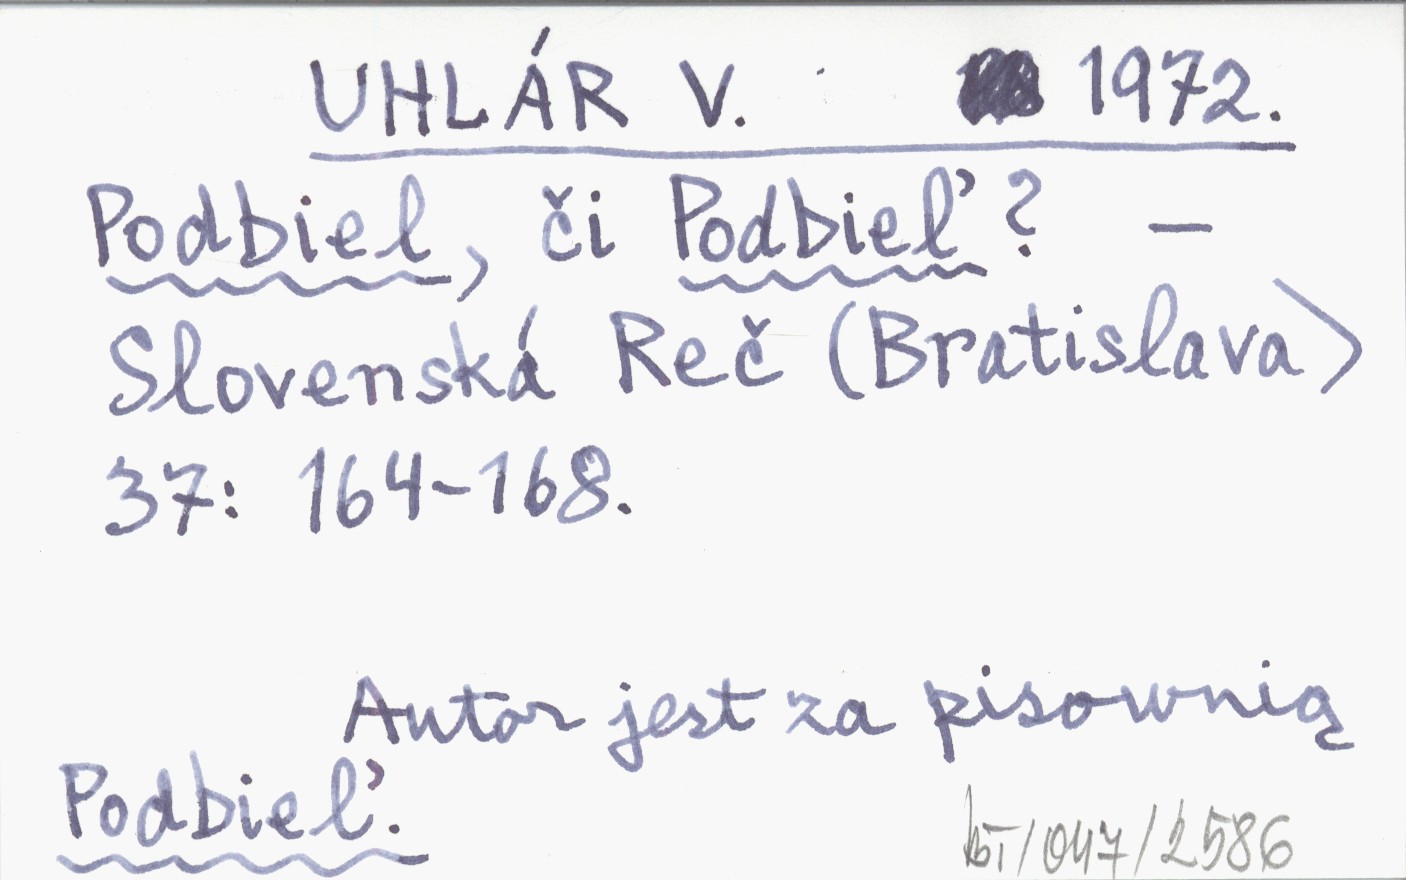 UHLÁR V. 1972.
Podbiel, či Podbieľ? —
Slovenská Reč (Bratislava)
37: 164-168.
Autor jest za pisownią
Podbieľ.
/047/2586